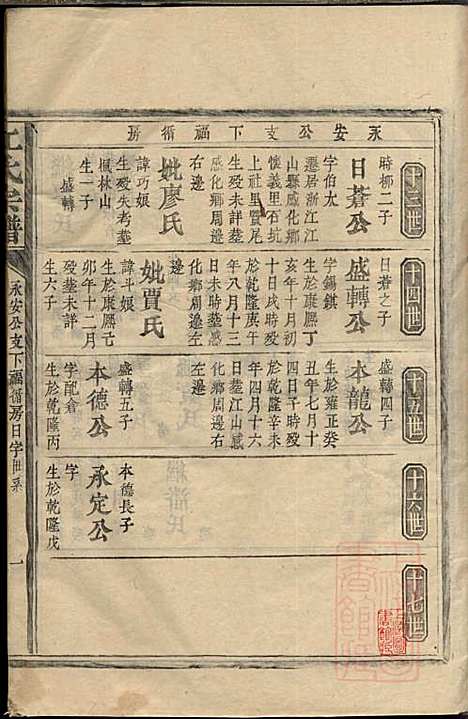 永安公支下福循房
十三世
時椰二子
日蒼公
字伯太
遷居浙江江
山縣感化鄉
懷義里石坑
上社里賢尾
生殁未詳葬
感化鄉周邊
右邊
妣廖氏
諱巧娘
生殁失考葬
楓林山
生一子
盛轉
十四世
日蒼之子
盛轉公
字錫錤
生於康熈丁
亥年十月初
十日戌時殁
於乾隆庚午
年八月十三
日未時葬感
化鄉周邊左
邊
妣賈氏
諱斗娘
生於康熈己
卯年十二月
殁葬未詳
生六子
十五世
盛轉四子
本龍公
生於雍正癸
丑年七月十
四日子時殁
於乾隆辛未
年四月十六
日葬江山感
化鄉周邊右
左邊
盛轉五子
本德公
字配倉
生於乾隆丙
十六世
本德長子
承定公
字
生於乾隆戊
十七世
氏宗譜
永安公支下福循房日字世系
一